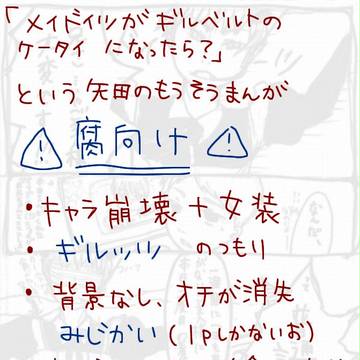 「メイドイツがギルベルトの
ケータイ になったら?」
という矢田のもうそうまんが
⚠ 腐向け ⚠
・キャラ崩壊+女装
・ギルッツ のつもり
・背景なし、オチが消失
みじかい(1pしかないお)